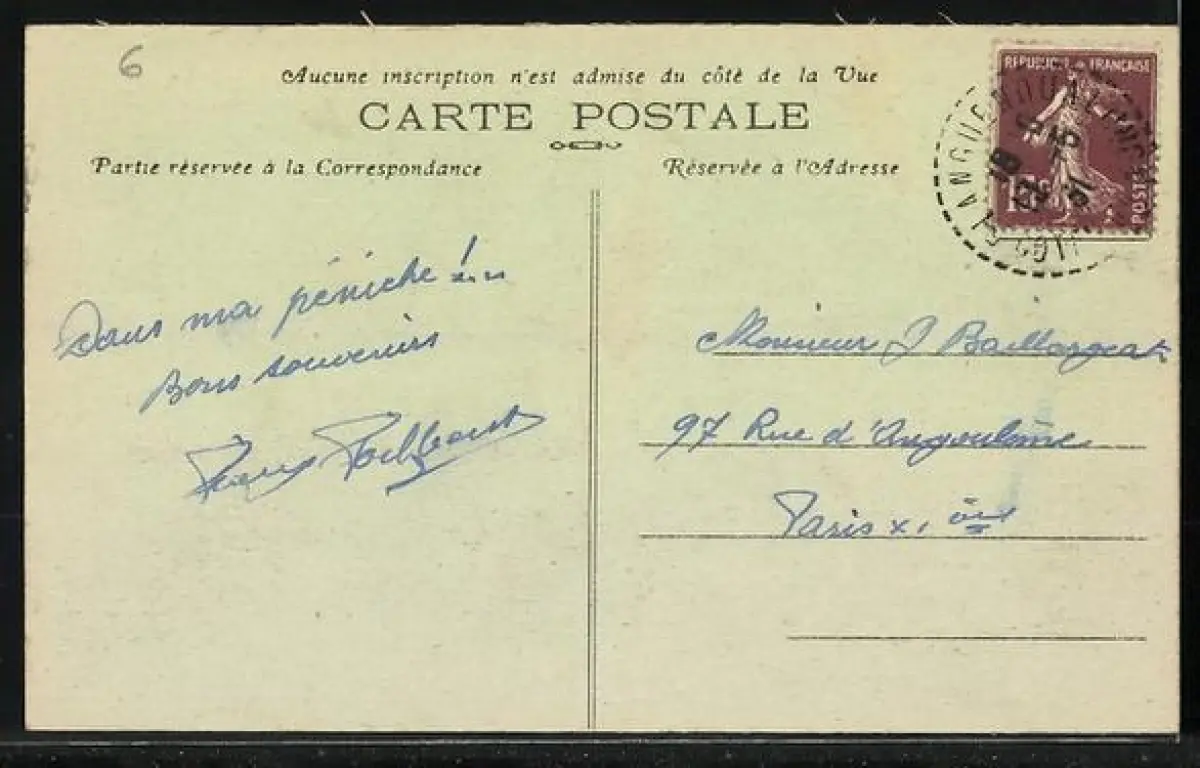 6
Aucune inscription n'est admise du côté de la Vue
CARTE POSTALE
Partie réservée à la Correspondance
Réservée à l'Adresse
REPUBLIQUE FRANÇAISE
15c
POSTES
18
Dans ma péniche !...
Bons souvenirs
Monsieur J Baillargeat
97 Rue d'Angoulême
Paris XI ème